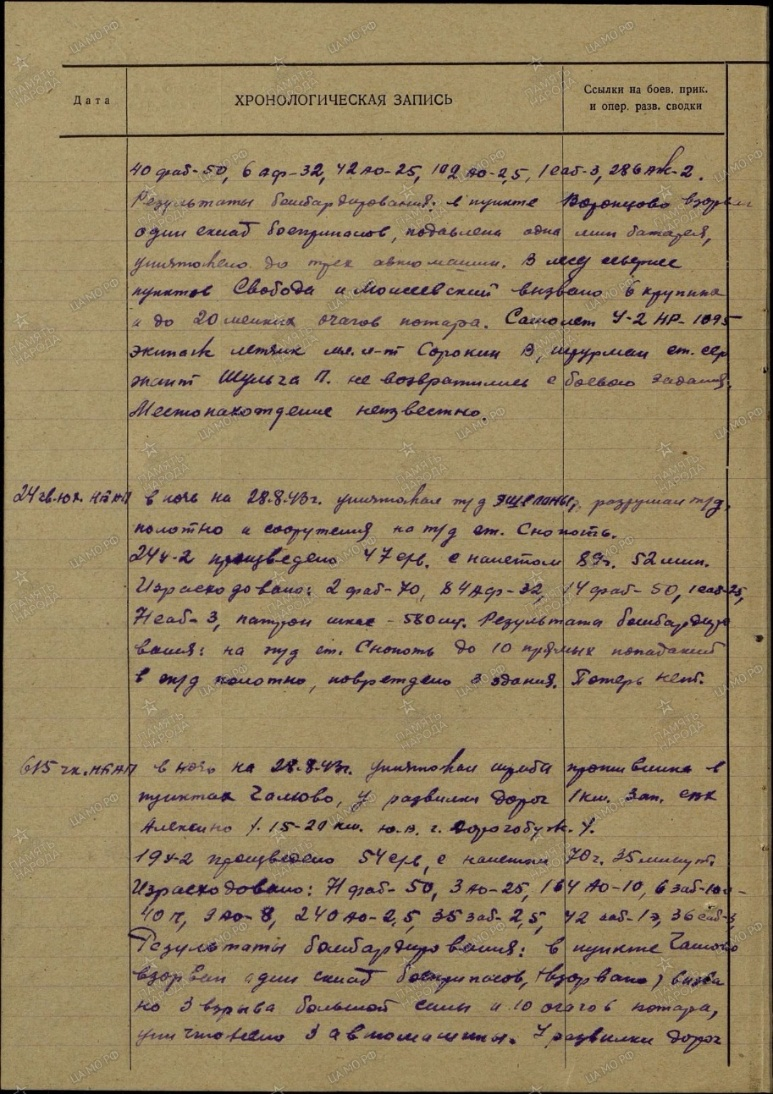 Дата
ХРОНОЛОГИЧЕСКАЯ ЗАПИСЬ
Ссылки на боев. прик.
и опер. разв. сводки
40 фаб-50, 6 аф-32, 42 АО-25, 192 АО-2,5, 1 саб-3, 286 АЖ-2.
Результаты бомбардирования: в пункте Воронцово взорван
один склад боеприпасов, подавлена одна мин батарея,
уничтожено до трех автомашин. В лесу севернее
пунктов Свобода и Моисеевский вызвано 6 крупных
и до 20 мелких очагов пожара. Самолет У-2 НР-1095
экипаж летчик мл. л-т Сорокин В, штурман ст. сер
жант Шульга П. не возвратились с боевого задания.
Местонахождение неизвестно.
24 гв. НБАП в ночь на 28.8.43г. уничтожал ж/д ЭШЕЛОНЫ, разрушал ж/д.
полотно и сооружения на ж/д ст. Снопоть.
24 У-2 произведено 47 с/в. с налетом 89ч. 52 мин.
Израсходовано: 2 фаб-70, 84 Аф-32, 14 фаб-50, 1 саб-25,
7 саб-3, патрон шкас -580 шт. Результаты бомбардиро
вания: на ж/д ст. Снопоть до 10 прямых попаданий
в ж/д полотно, повреждено 3 здания. Потерь нет.
615 НБАП в ночь на 28.8.43г. уничтожал штаба противника в
пунктах Чамово, у развилки дорог 1 км. зап.
Алексино /. 15-20 км. ю.в. г. Дорогобуж. /.
19 У-2 произведено 54 с/в, с налетом 70ч. 35 минут
Израсходовано: 71 фаб-50, 3 АО-25, 164 АО-10, 6 заб-100-
40 п, 9 АО-8, 240 АО-2,5, 35 заб-2,5, 42 саб-1э, 36 саб-3,
Результаты бомбардирования: в пункте Чамово
взорван один склад боеприпасов, (взорвано) вызва
но 3 взрыва большой силы и 10 очагов пожара,
уничтожено 3 автомашины. У развилки дорог